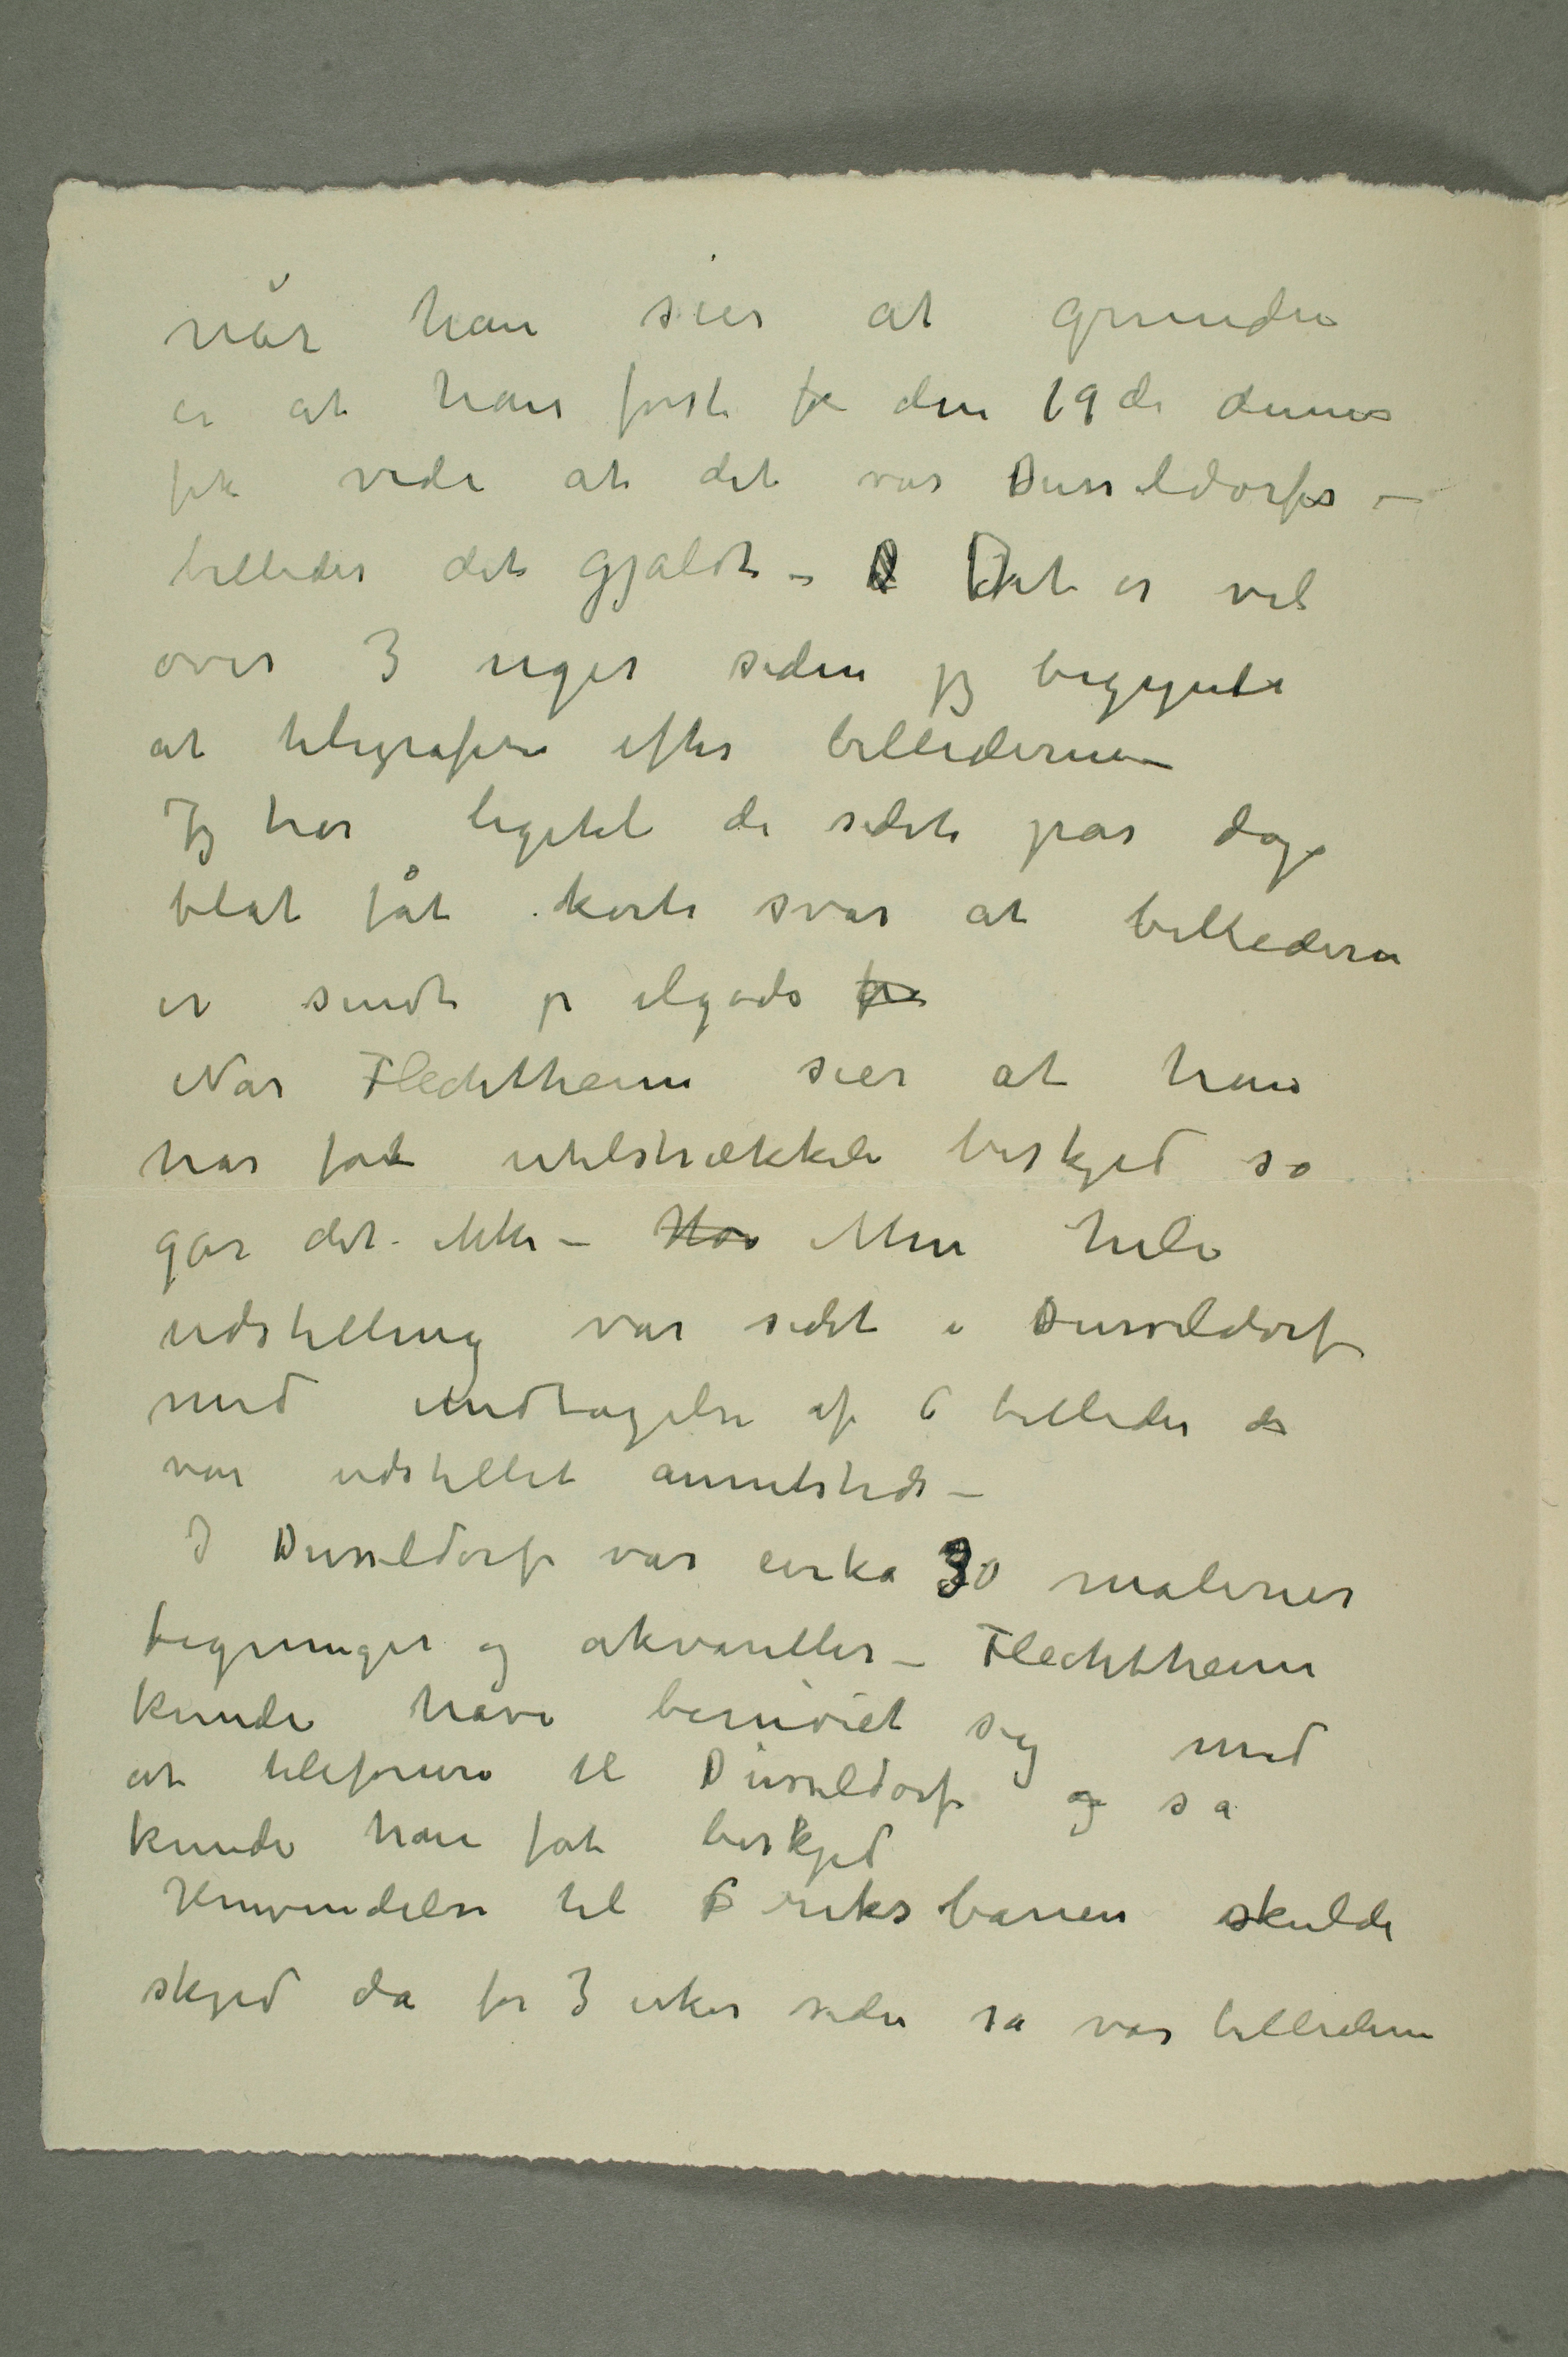 når han sier at grunden
er at han først fr den 19de dennes
fik vide at det var Dusseldorfer –
billeder det gjaldt – D Det er vel
over 3 uger siden jeg begynte
at telegrafere efter billederne –
Jeg har ligetil de sidste par dage
blat fåt korte svar at billederne
er sendt pr ilgods fra
Nar Flechtheim sier at han
har fåt utilstrækkeli beskjed så
går det ikke – Hov Min hele
udstilling var sidst i Dusseldorf
med undtagelse af 6 billeder der
var udstillet annetsteds –
I Dusseldorf var cirka 30 malerier
tegninger og akvareller – Flechtheim
kunde have bemøiet sig med
at telefonere til Düsseldorf og sa
kunde han fåt beskjed
Henvendelse til riksbanen skulde
skjed da for 3 uker siden sa var billederne